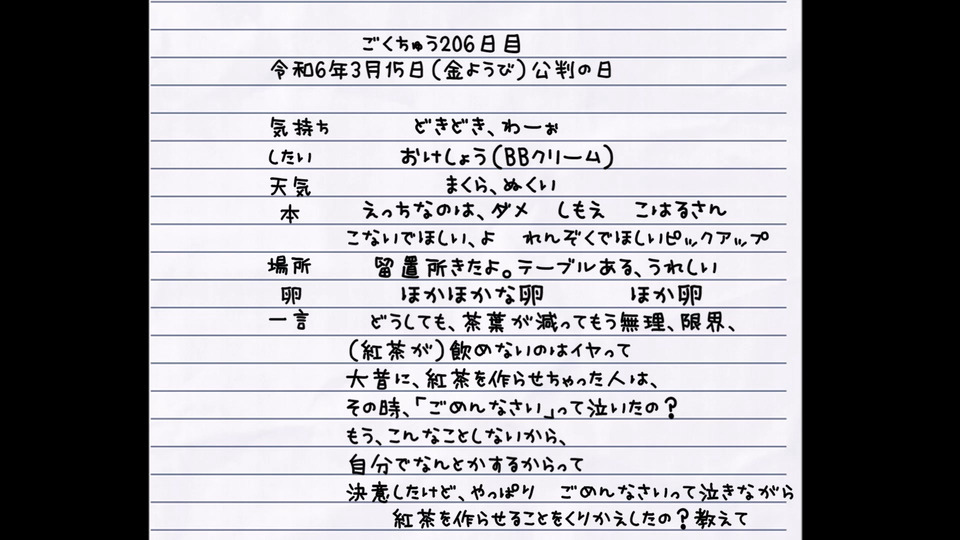 ごくちゅう206日目
令和6年3月15日(金ようび)公判の日
気持ち どきどき、わーぉ
したい おけしょう(BBクリーム)
天気 まくら、ぬくい
本 えっちなのは、ダメ しもえ こはるさん
こないでほしい、よ れんぞくでほしいピックアップ
場所 留置所きたよ。テーブルある、うれしい
卵 ほかほかな卵 ほか卵
一言 どうしても、茶葉が減ってもう無理、限界、
(紅茶が)飲めないのはイヤって
大昔に、紅茶を作らせちゃった人は、
その時、「ごめんなさい」って泣いたの?
もう、こんなことしないから、
自分でなんとかするからって
決意したけど、やっぱり ごめんなさいって泣きながら
紅茶を作らせることをくりかえしたの?教えて